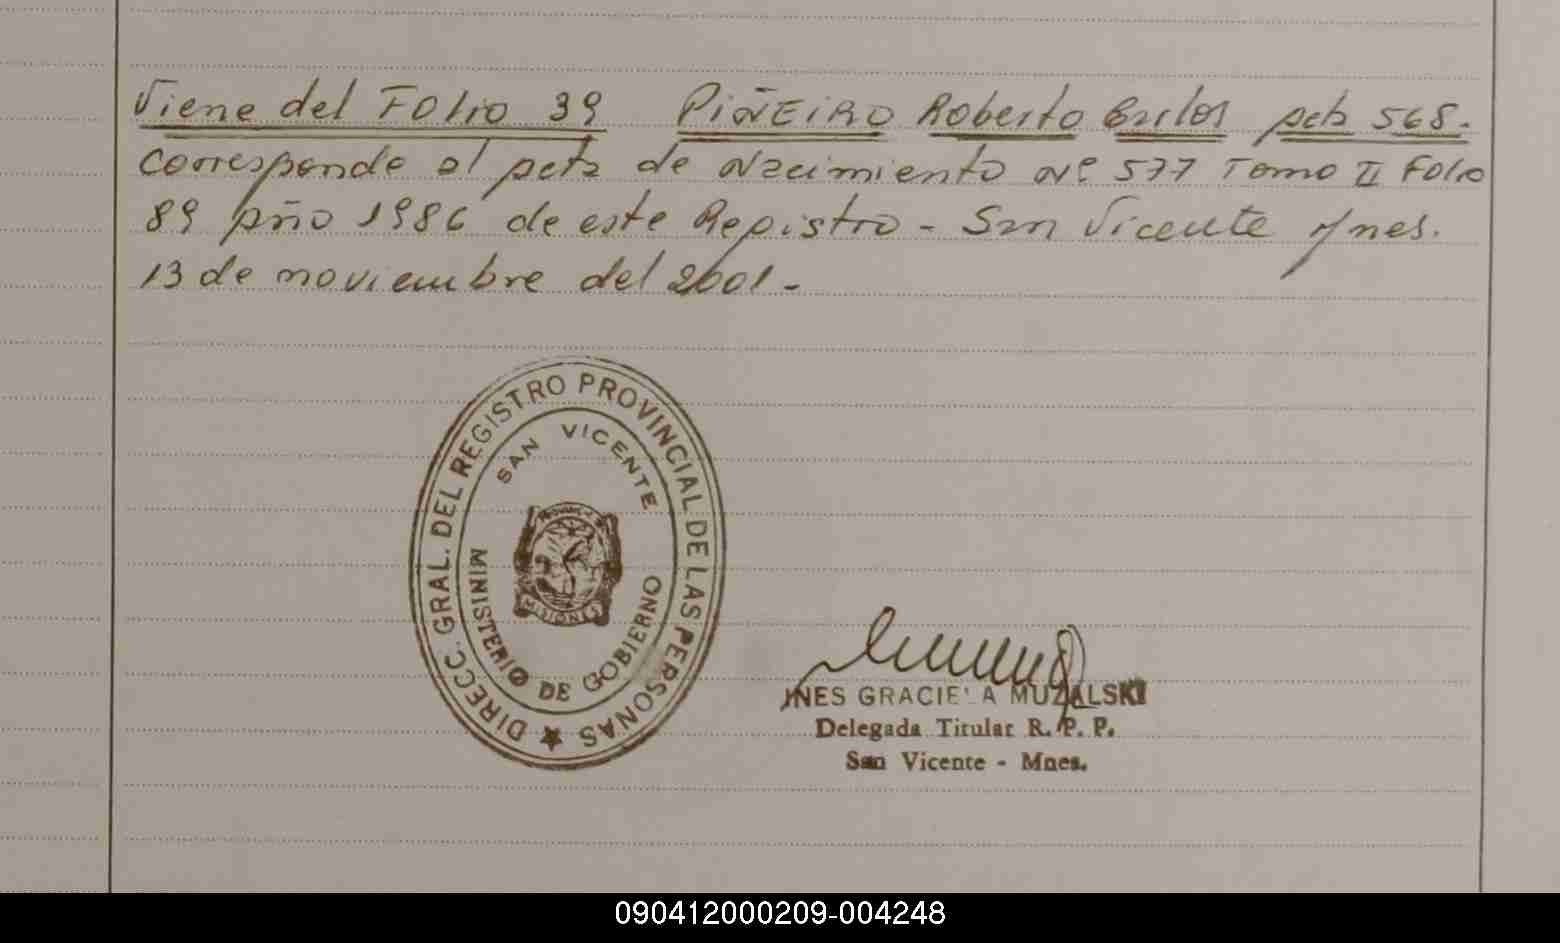 Viene del Folio 39 PIÑEIRO Roberto Carlos acta 568.-
Corresponde al acta de Nacimiento Nº 577 Tomo II Folio
89 año 1986 de este Registro - San Vicente Mnes.
13 de noviembre del 2001 -
DIRECC. GRAL. DEL REGISTRO PROVINCIAL DE LAS PERSONAS
SAN VICENTE
MISIONES
MINISTERIO DE GOBIERNO
INES GRACIELA MUZALSKI
Delegada Titular R. P. P.
San Vicente - Mnes.
090412000209-004248